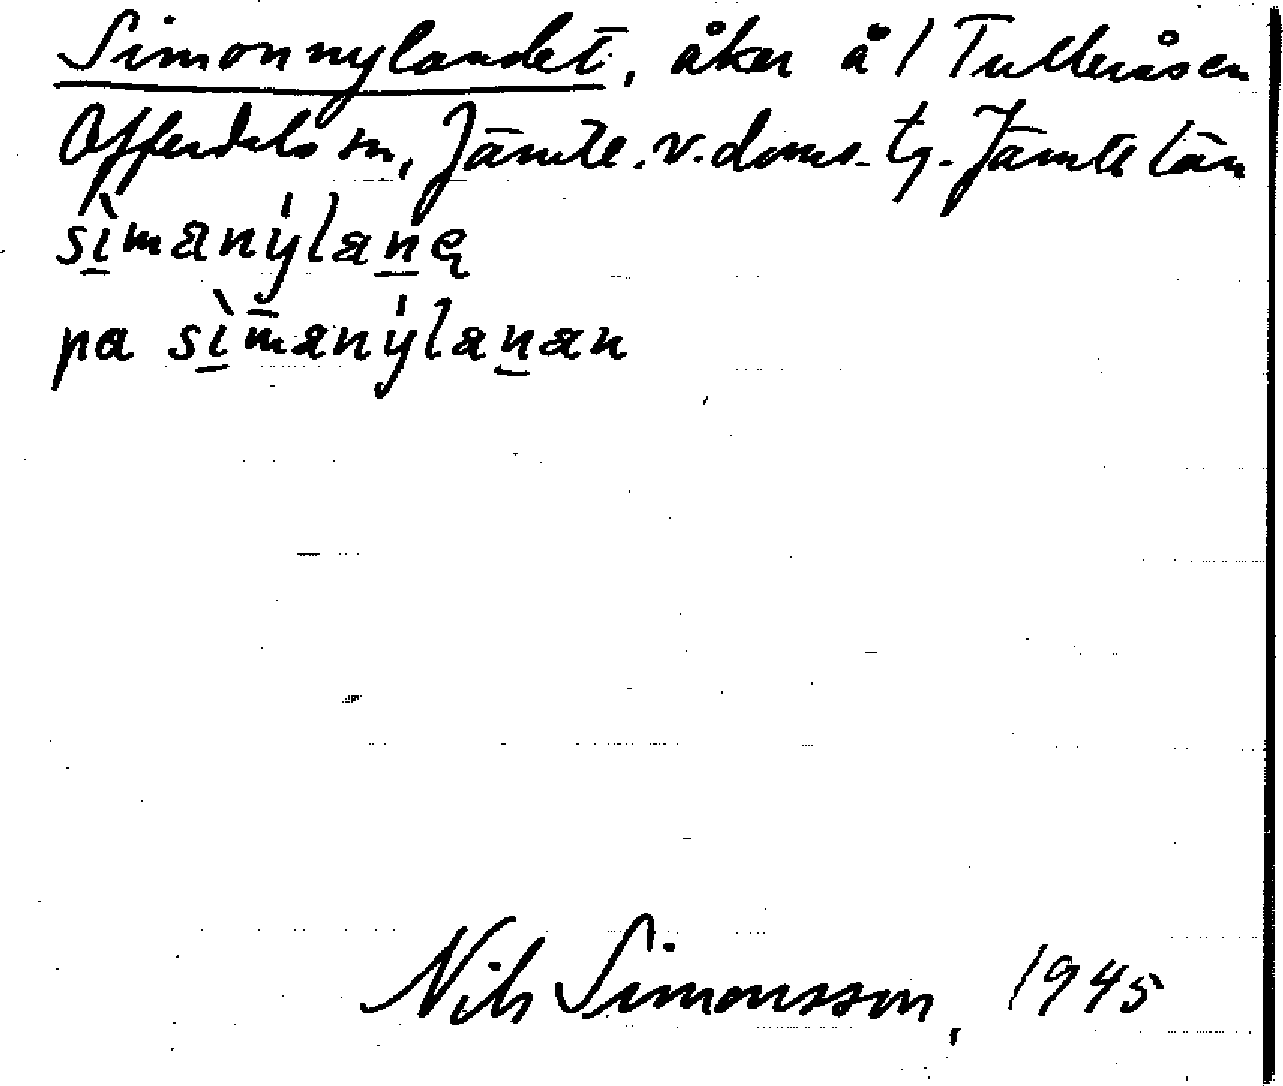 Simonnylandet, åker å 1 Tulleråsen
Offerdals sn, Jämtl. v. doms. tg. Jämtl. län
sìmanýlanę
pa sìmanýlanan
Nils Simonsson, 1945